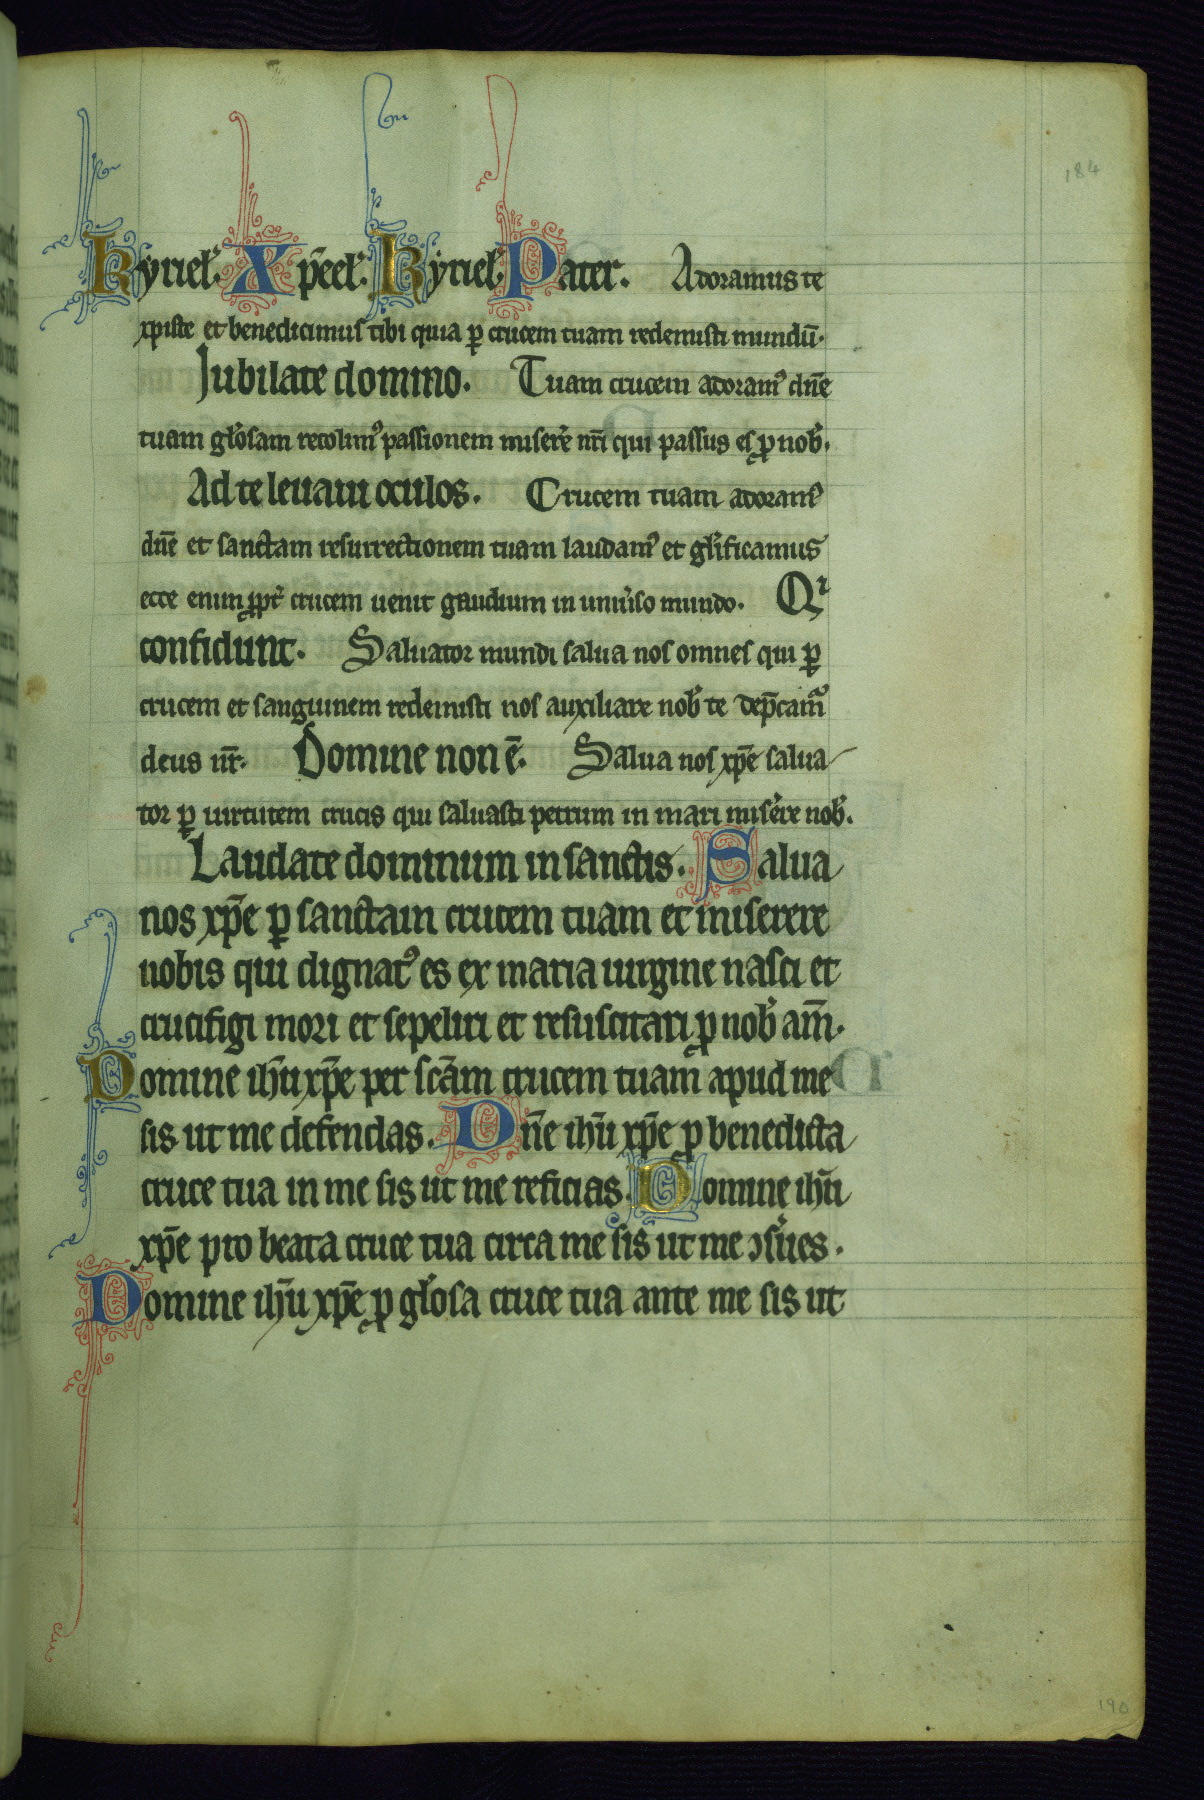 184
Kyriel'. Xp̄eel'. Kyriel'. Pater. Adoramus te
xpiste et benedicimus tibi quia ꝑ crucem tuam redemisti mundū.
Jubilate domino. Tuam crucem adoramꝰ dn̄e
tuam gl'osam recolimꝰ passionem miser'e nr̄i qui passus es ꝓ nob'.
Ad te leuaui oculos. Crucem tuam adoramꝰ
dn̄e et sanctam resurrectionem tuam laudamꝰ et gl'ificamus
ecce enim ꝓpt' crucem uenit gaudium in uniu'so mundo. Qⁱ
confidunt. Saluator mundi salua nos omnes qui ꝑ
crucem et sanguinem redemisti nos auxiliare nob' te dep̄camꝰ
deus nr̄. Domine non ē. Salua nos xp̄e salua
tor ꝑ uirtutem crucis qui saluasti petrum in mari miser'e nob'.
Laudate dominum in sanctis. Salua
nos xp̄e ꝑ sanctam crucem tuam et miserere
nobis qui dignatꝰ es ex maria uirgine nasci et
crucifigi mori et sepeliri et resuscitari ꝓ nob' am̄.
Domine ih̄u xp̄e per sc̄am crucem tuam apud me
sis ut me defendas. Dn̄e ih̄u xp̄e ꝓ benedicta
cruce tua in me sis ut me reficias. Domine ih̄u
xp̄e pro beata cruce tua circa me sis ut me ꝯsu'es.
Domine ih̄u xp̄e ꝓ gl'osa cruce tua ante me sis ut
190